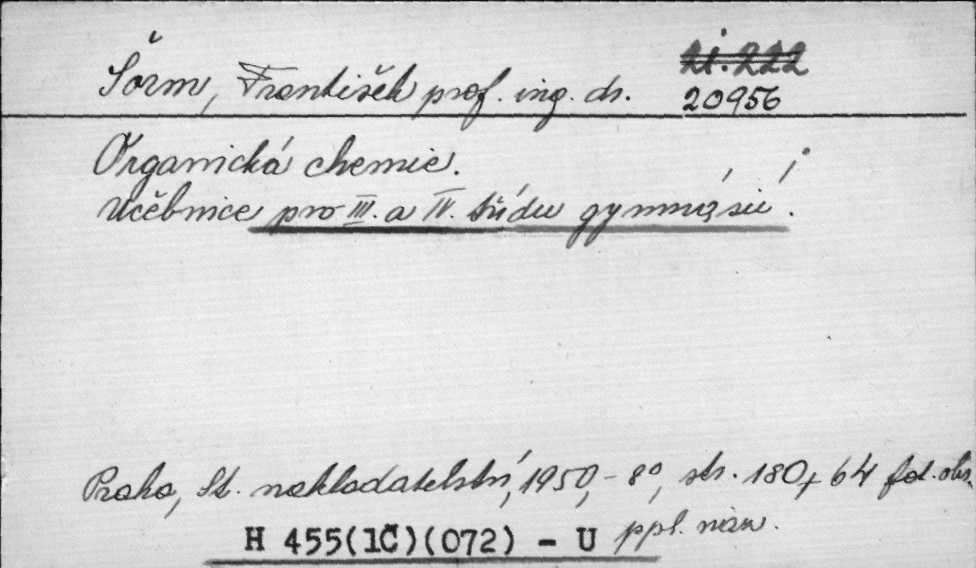 Šorm, František prof. ing. dr.
20956
Organická chemie.
Učebnice pro III. a IV. třídu gymnásií.
Praha, St. nakladatelství, 1950, - 8°, str. 180 + 64 fot. obr.
H 455(1Č)(072) - U ppl. náz.